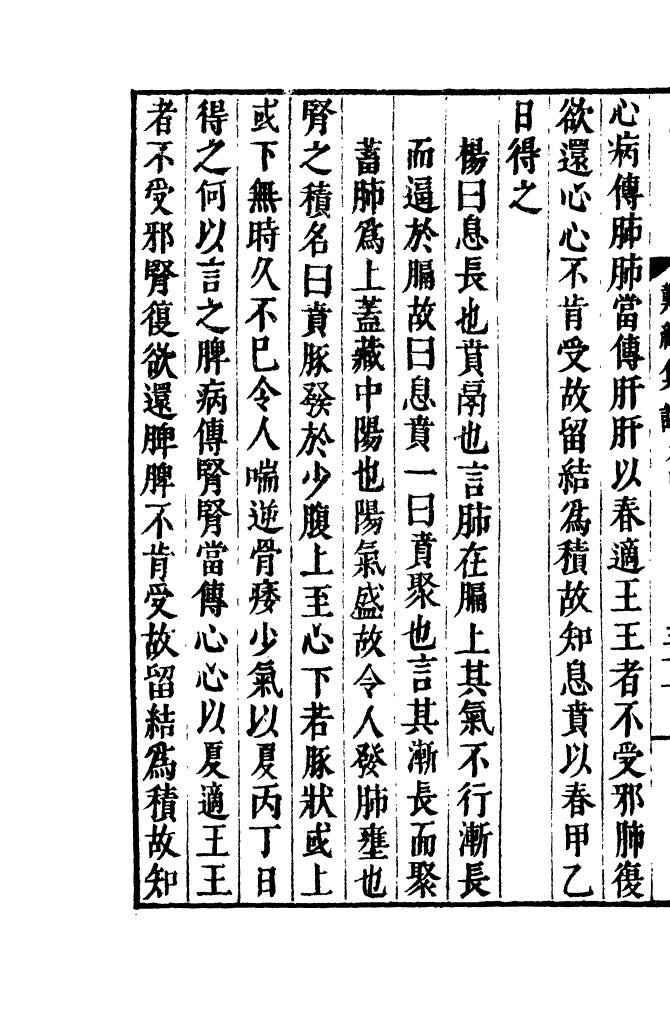 心病傳肺肺當傳肝肝以春適王王者不受邪肺復
欲還心心不肯受故留結爲積故知息賁以春甲乙
日得之
楊曰息長也賁鬲也言肺在膈上其氣不行漸長
而逼於膈故曰息賁一曰賁聚也言其漸長而聚
蓄肺爲上蓋藏中陽也陽氣盛故令人發肺壅也
腎之積名曰賁豚發於少腹上至心下若豚狀或上
或下無時久不已令人喘逆骨痿少氣以夏丙丁日
得之何以言之脾病傳腎腎當傳心心以夏適王王
者不受邪腎復欲還脾脾不肯受故留結爲積故知